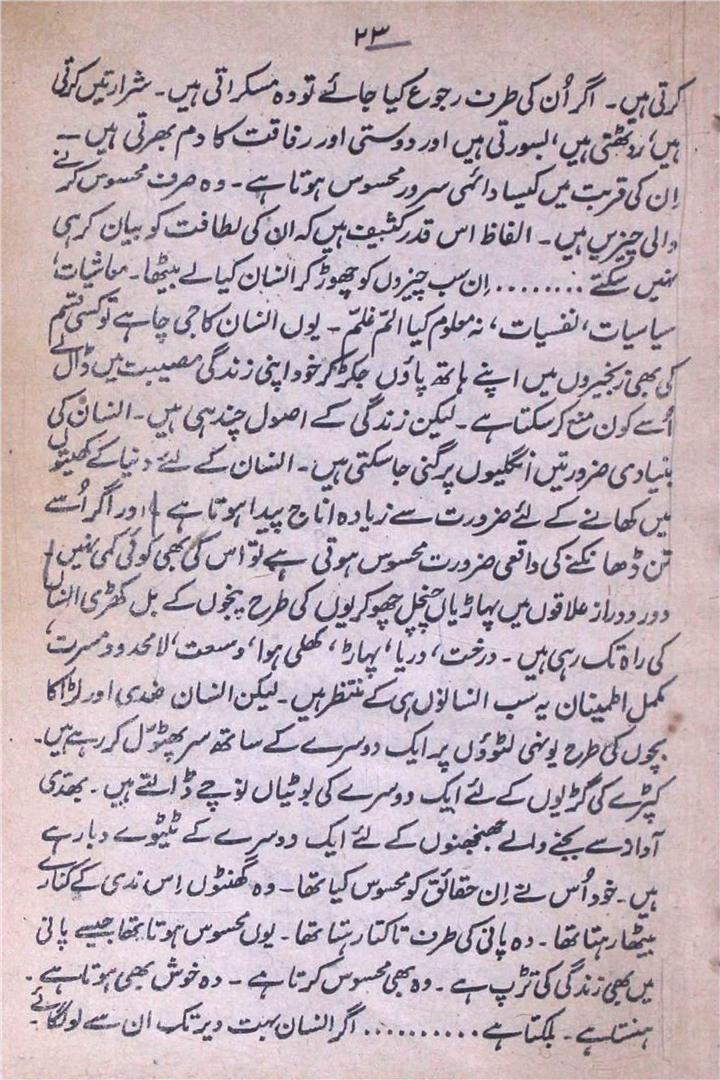 ۲۳
کرتی ہیں۔ اگر اُن کی طرف رجوع کیا جائے تو وہ مسکراتی ہیں۔ شرارتیں کرتی
ہیں، روٹھتی ہیں، بسورتی ہیں اور دوستی اور رفاقت کا دم بھرتی ہیں۔
اِن کی قربت میں کیسا دائمی سرور محسوس ہوتا ہے۔ وہ صرف محسوس کرنے
والی چیزیں ہیں۔ الفاظ اس قدر کثیف ہیں کہ ان کی لطافت کو بیان کر ہی
نہیں سکتے ........ اِن سب چیزوں کو چھوڑ کر انسان کیا لے بیٹھا۔ معاشیات،
سیاسیات، نفسیات، نہ معلوم کیا المّ غلمّ۔ یوں انسان کا جی چاہے تو کسی قسم
کی بھی زنجیروں میں اپنے ہاتھ پاؤں جکڑ کر خود اپنی زندگی مصیبت میں ڈالے
اُسے کون منع کر سکتا ہے۔ لیکن زندگی کے اصول چند ہی ہیں۔ انسان کی
بنیادی ضرورتیں انگلیوں پر گنی جا سکتی ہیں۔ انسان کے لئے دنیا کے کھیتوں
میں کھانے کے لئے ضرورت سے زیادہ اناج پیدا ہوتا ہے اور اگر اُسے
تن ڈھانکنے کی واقعی ضرورت محسوس ہوتی ہے تو اس کی بھی کوئی کمی نہیں
دور دراز علاقوں میں پہاڑیاں چنچل چھوکریوں کی طرح پنجوں کے بل کھڑی انسان
کی راہ تک رہی ہیں۔ درخت، دریا، پہاڑ، کھلی ہوا، وسعت، لامحدود مسرت،
مکمل اطمینان یہ سب انسانوں ہی کے منتظر ہیں۔ لیکن انسان ضدی اور لڑاکا
بچوں کی طرح یونہی لٹوؤں پر ایک دوسرے کے ساتھ سر پھٹوّل کر رہے ہیں۔
کپڑے کی گڑیوں کے لئے ایک دوسرے کی بوٹیاں نوچے ڈالتے ہیں۔ بھدّی
آواز سے بجنے والے جھنجھنوں کے لئے ایک دوسرے کے ٹیٹوے دبا رہے
ہیں۔ خود اُس نے اِن حقائق کو محسوس کیا تھا۔ وہ گھنٹوں اِس ندی کے کنارے
بیٹھا رہتا تھا۔ وہ پانی کی طرف تاکتا رہتا تھا۔ یوں محسوس ہوتا تھا جیسے پانی
میں بھی زندگی کی تڑپ ہے۔ وہ بھی محسوس کرتا ہے۔ وہ خوش بھی ہوتا ہے۔
ہنستا ہے۔ بلکتا ہے .......... اگر انسان بہت دیر تک ان سے لو لگائے